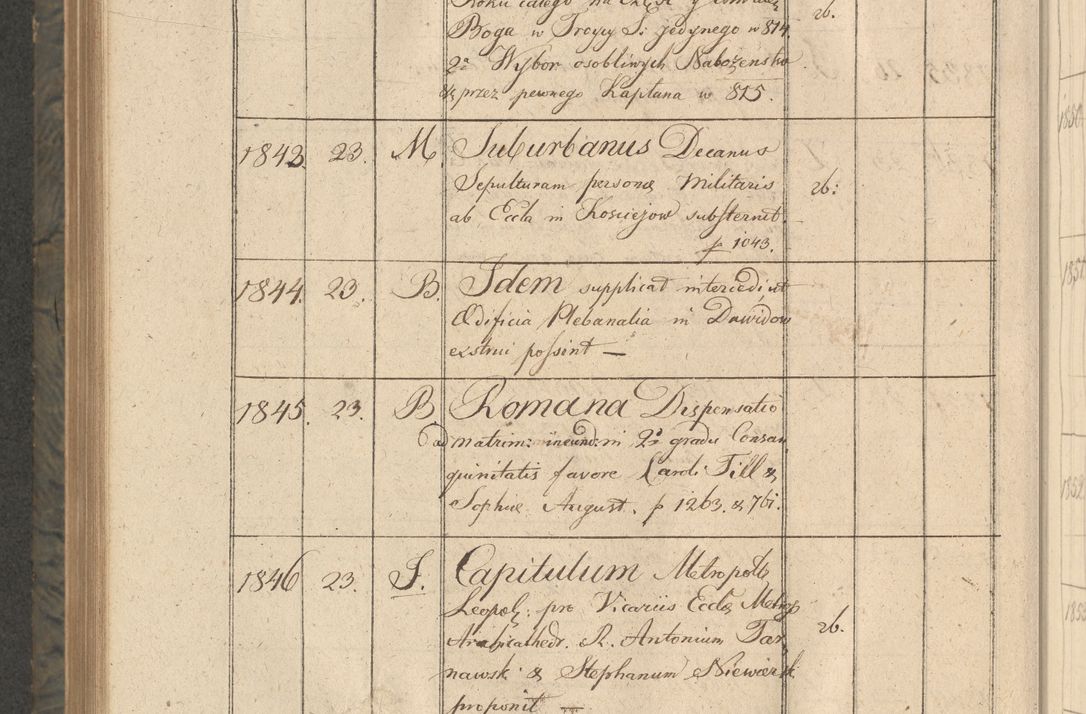 Roku całego na
Boga w Troycy S: jedynego w 814
2o Wybor osobliwych Nabożenstw
& przez pewnego Kapłana w 815.
26.
1843 23. M Suburbanus Decanus
Sepulturam personæ Militaris
ab Eccla in Kosciejow substernit.
p 1043.
26:
1844. 23. B. Idem supplicat
Ædificia Plebanalia in Dawidow
exstrui possint —
1845. 23. B Romana Dispensatio
ad matrim: ineund: in 2o gradu Consan
guinitatis favore Caroli Till &
Sophiæ August. p 1263. & 761.
1846 23. S. Capitulum Metropolit
Leopol: pro Vicariis Eccle Metrop
Archicathedr. R. Antonium Tar
nawski & Stephanum Niewiersk
proponit —
26.